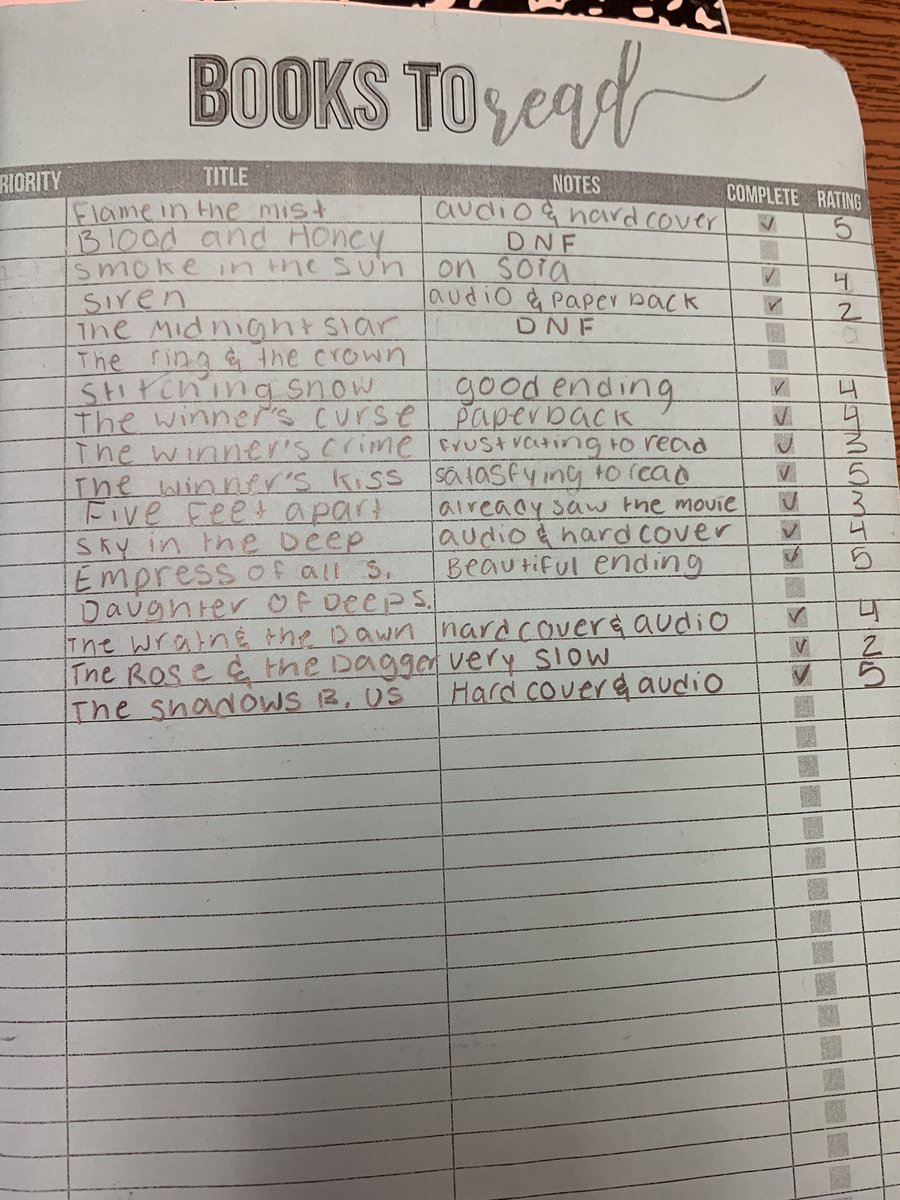 BOOKS TO read
RIORITY TITLE NOTES COMPLETE RATING
Flame in the mist audio & hard cover 5
Blood and Honey DNF
Smoke in the Sun on Sora 4
Siren audio & paper back 2
The Midnight Star DNF 0
The ring & the crown
Stitching snow good ending 4
The winner's curse paperback 4
The winner's crime frustrating to read 3
The winner's kiss satasfying to read 5
Five Feet apart already saw the movie 3
Sky in the Deep audio & hard cover 4
Empress of all S. Beautiful ending 5
Daughter of Deep S.
The Wrath & the Dawn hard cover & audio 4
The Rose & the Dagger very slow 2
The shadows B. US Hard cover & audio 5